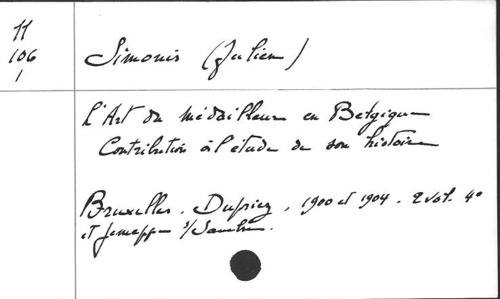 11
106
1
Simonis (Julien)
L'Art du médailleur en Belgique
Contribution à l'étude de son histoire
Bruxelles. Dupriez, 1900 et 1904. 2 vol. 4°
et Jemeppe s/Sambre.